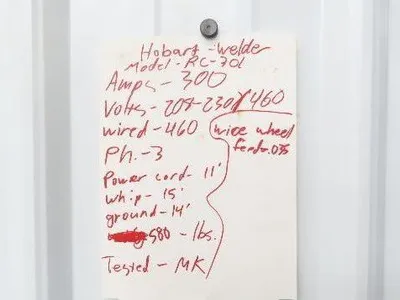 Hobart - Welder
Model - RC-301
Amps - 300
Volts - 208-230/460
wired - 460
Ph. - 3
Power cord - 11'
whip - 15'
ground - 14'
580 - lbs.
Tested - MK
wire wheel
feeder.035